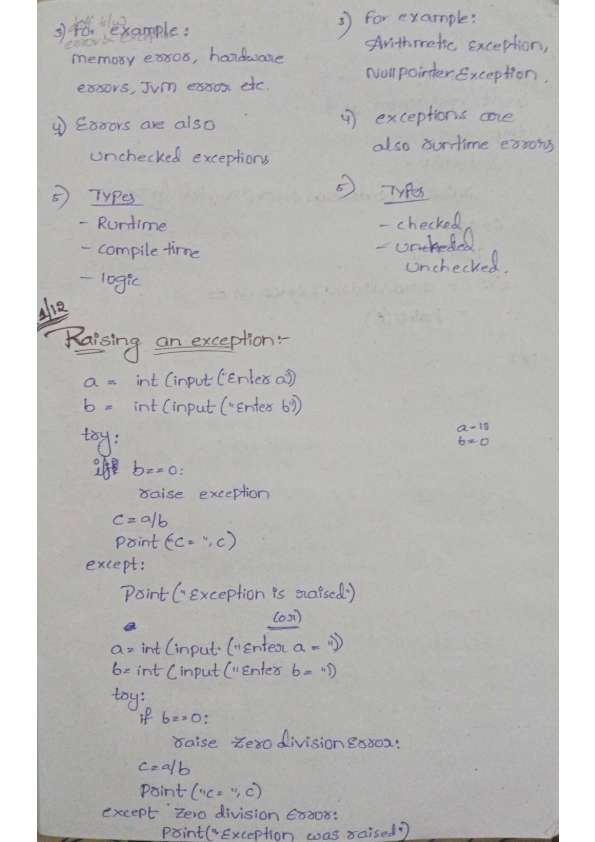 3) For example:
memory error, hardware
errors, Jvm error etc.
4) Errors are also
unchecked exceptions
5) Types
- Runtime
- compile time
- logic
3) For example:
Arithmetic Exception,
Nullpointer Exception.
4) exceptions are
also runtime errors
5) Types
- checked
- uncheked
unchecked.
1/12
Raising an exception:-
a = int (input ("Enter a")
b = int (input ("Enter b")
try:
if b==0:
raise exception
c=a/b
Print ("c= ", c)
except:
Print ("Exception is raised")
a=10
b=0
(or)
a= int (input ("Enter a = ")
b= int (input ("Enter b = ")
try:
if b==0:
raise zero division Error:
c=a/b
Print ("c= ", c)
except zero division Error:
Print("Exception was raised")